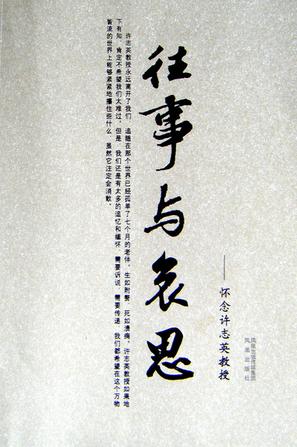 往事与哀思
——怀念许志英教授
许志英教授永远离开了我们，追随在那个世界已经孤单了七个月的老伴。生如附赘，死如溃痈。许志英教授如果地
下有知，肯定不希望我们太难过。但是，我们还是有太多的追忆和缅怀，需要诉说，需要传递。我们都希望在这个万物
皆流的世界上能够紧紧地攥住些什么，虽然它注定会消散。
凤凰出版传媒集团
凤凰出版社